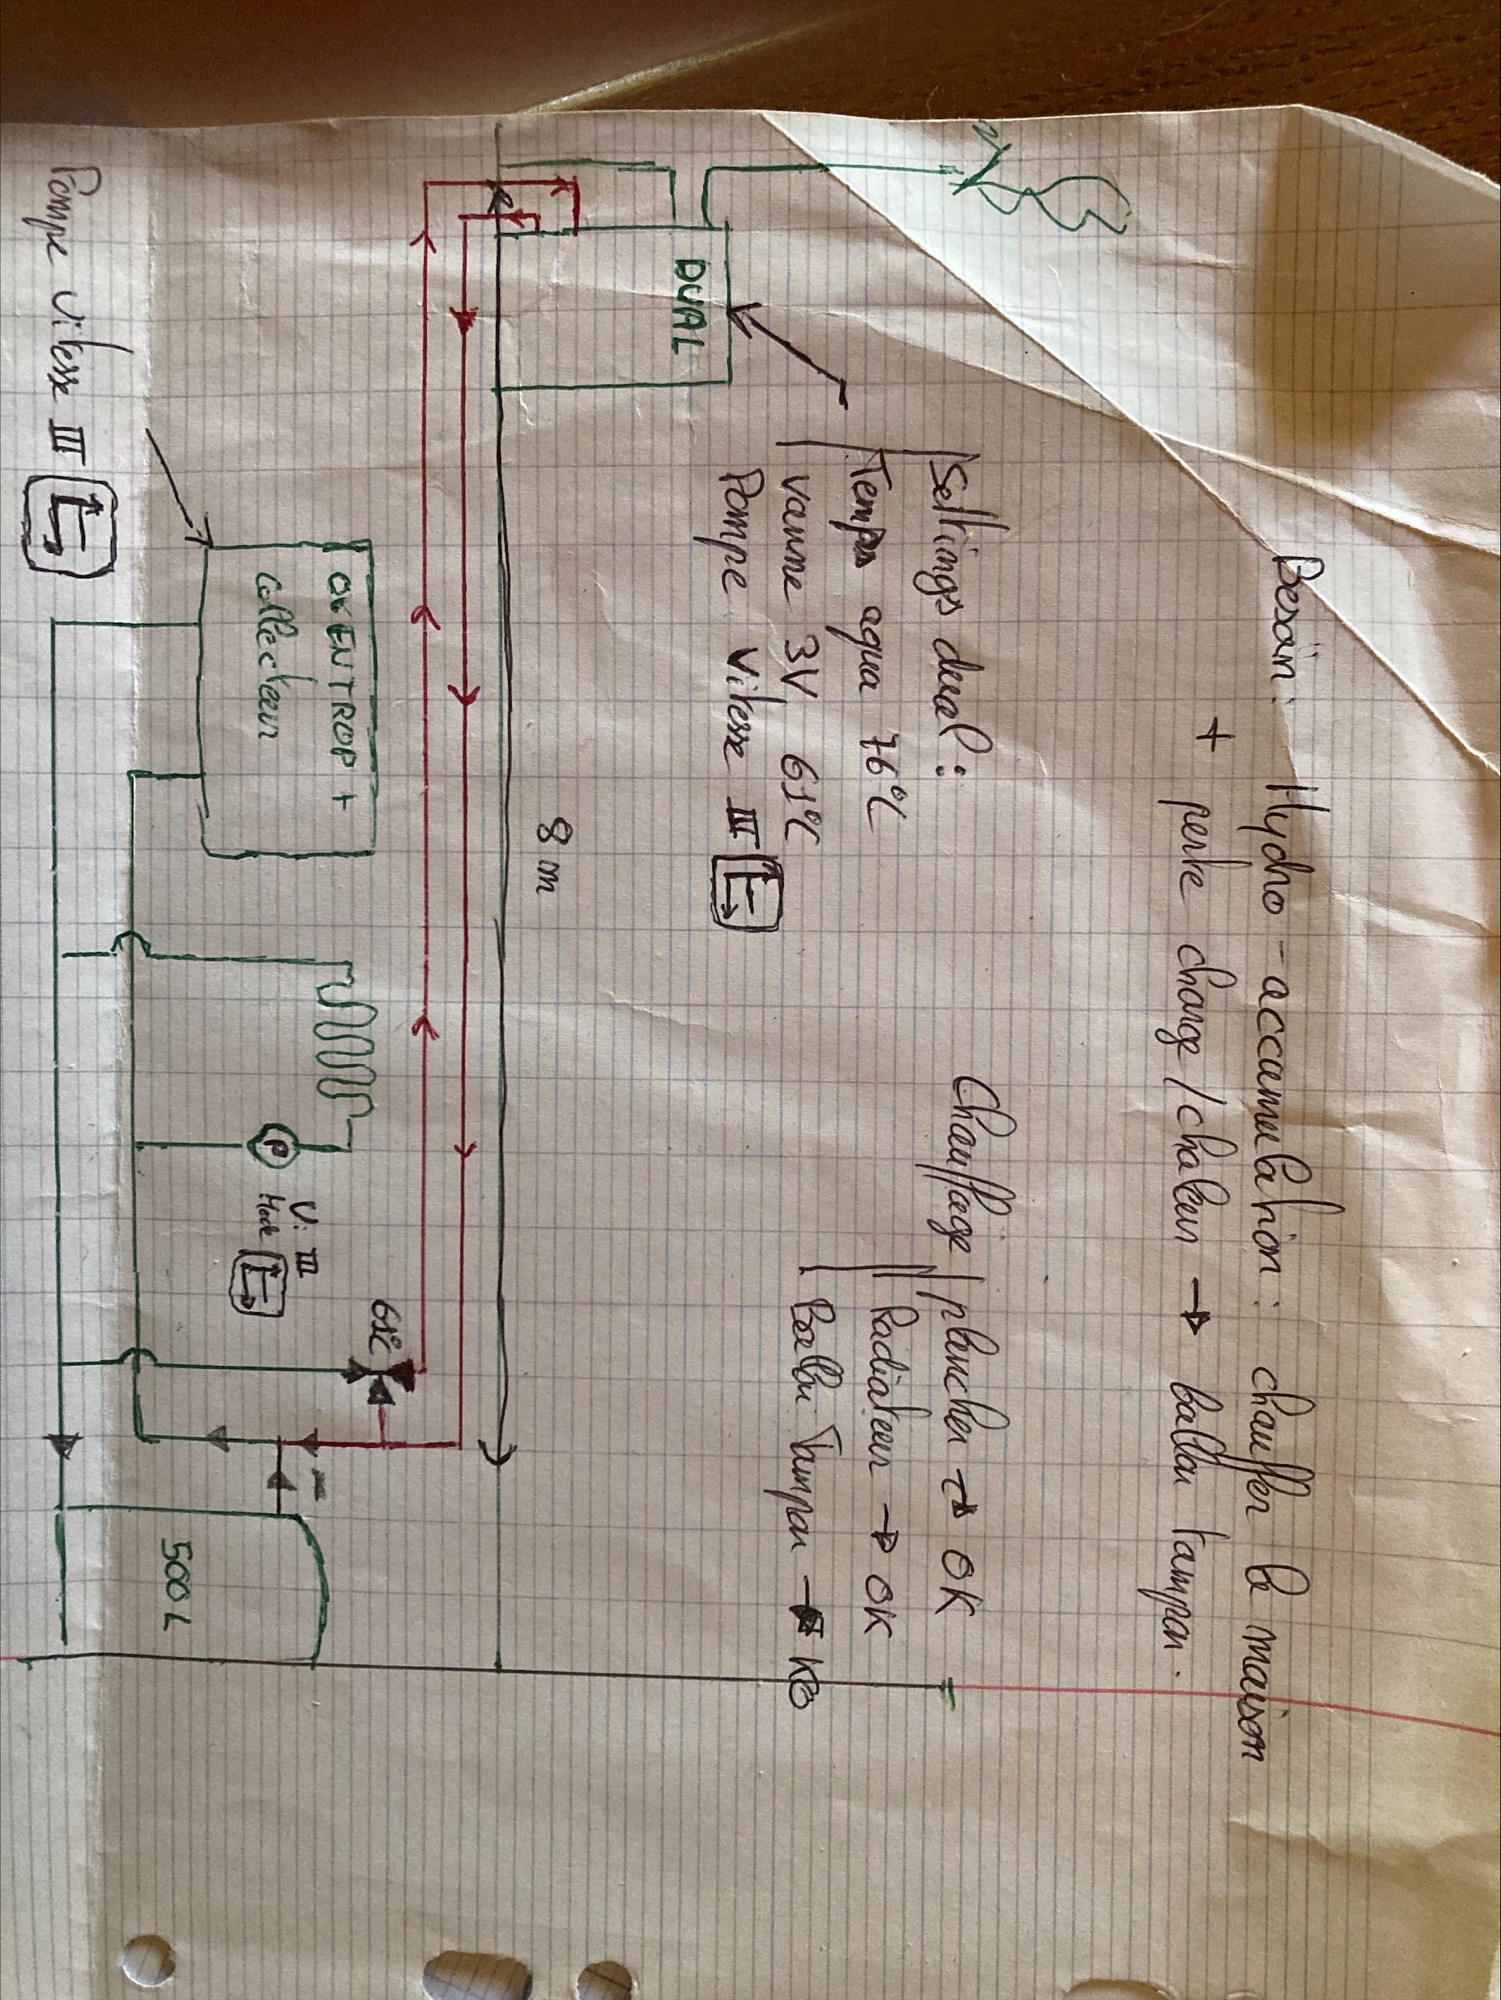 Besoin : Hydro-accumulation : chauffer la maison
+ perte charge / chaleur → ballon tampon.
Settings dual :
Temps aqua 76°C
Vanne 3V 61°C
Pompe Vitesse III
Chauffage
plancher → OK
Radiateur → OK
Ballon Tampon → KO
DUAL
8 m
61°C
OVENTROP +
Collecteur
P
Vi III
500L
Pompe Vitesse III